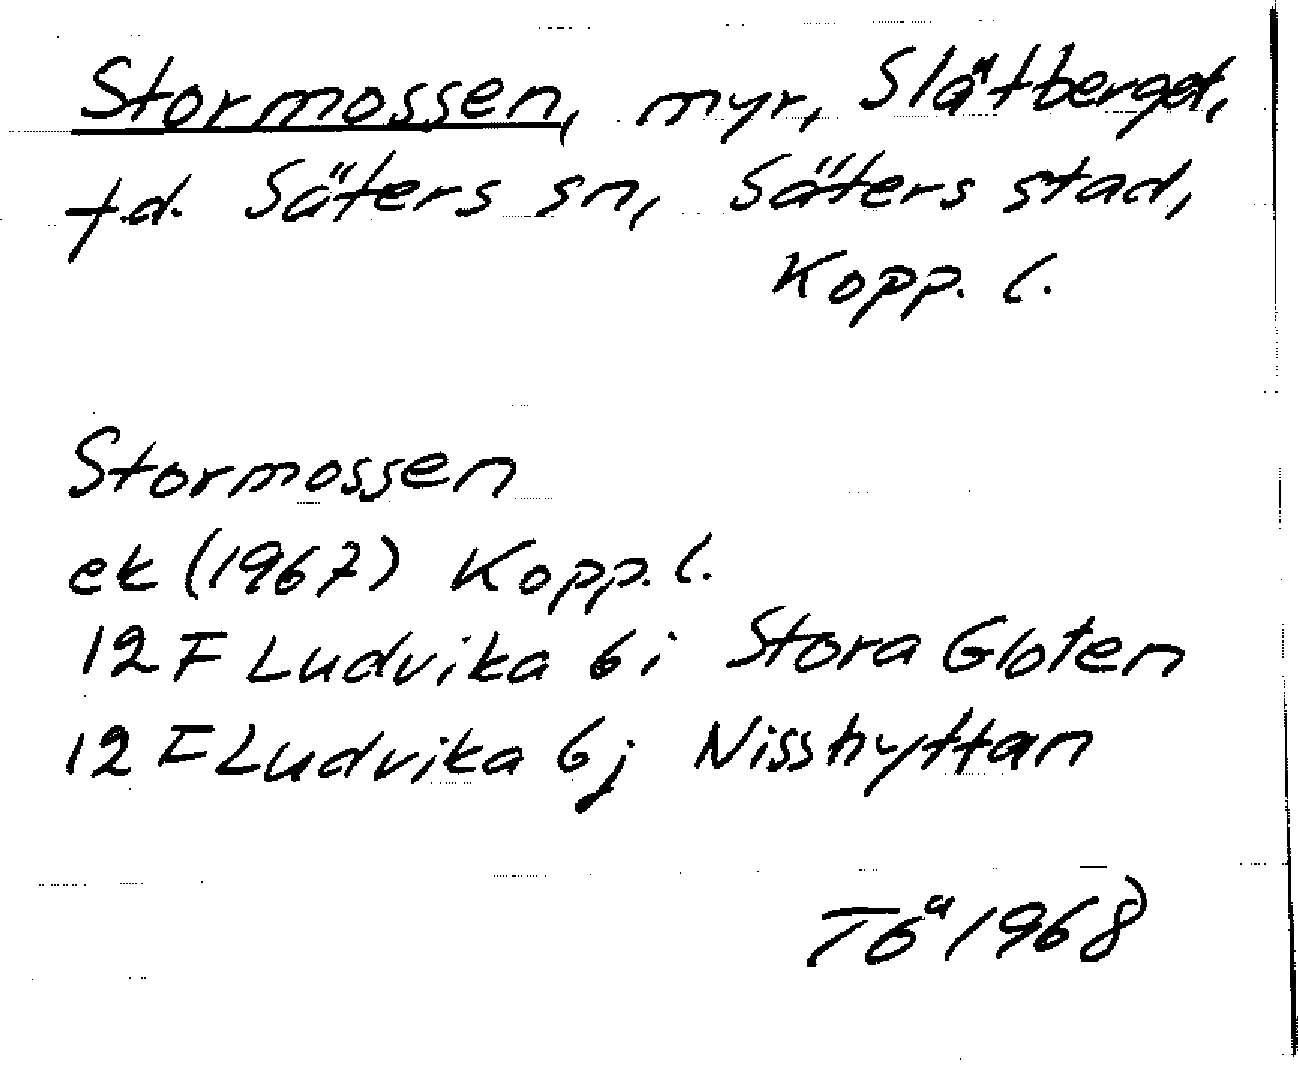 Stormossen, myr, Slätberget,
f.d. Säters sn, Säters stad,
Kopp. l.
Stormossen
ek (1967) Kopp. l.
12 F Ludvika 6 i Stora Gloten
12 F Ludvika 6 j Nisshyttan
Tö 1968